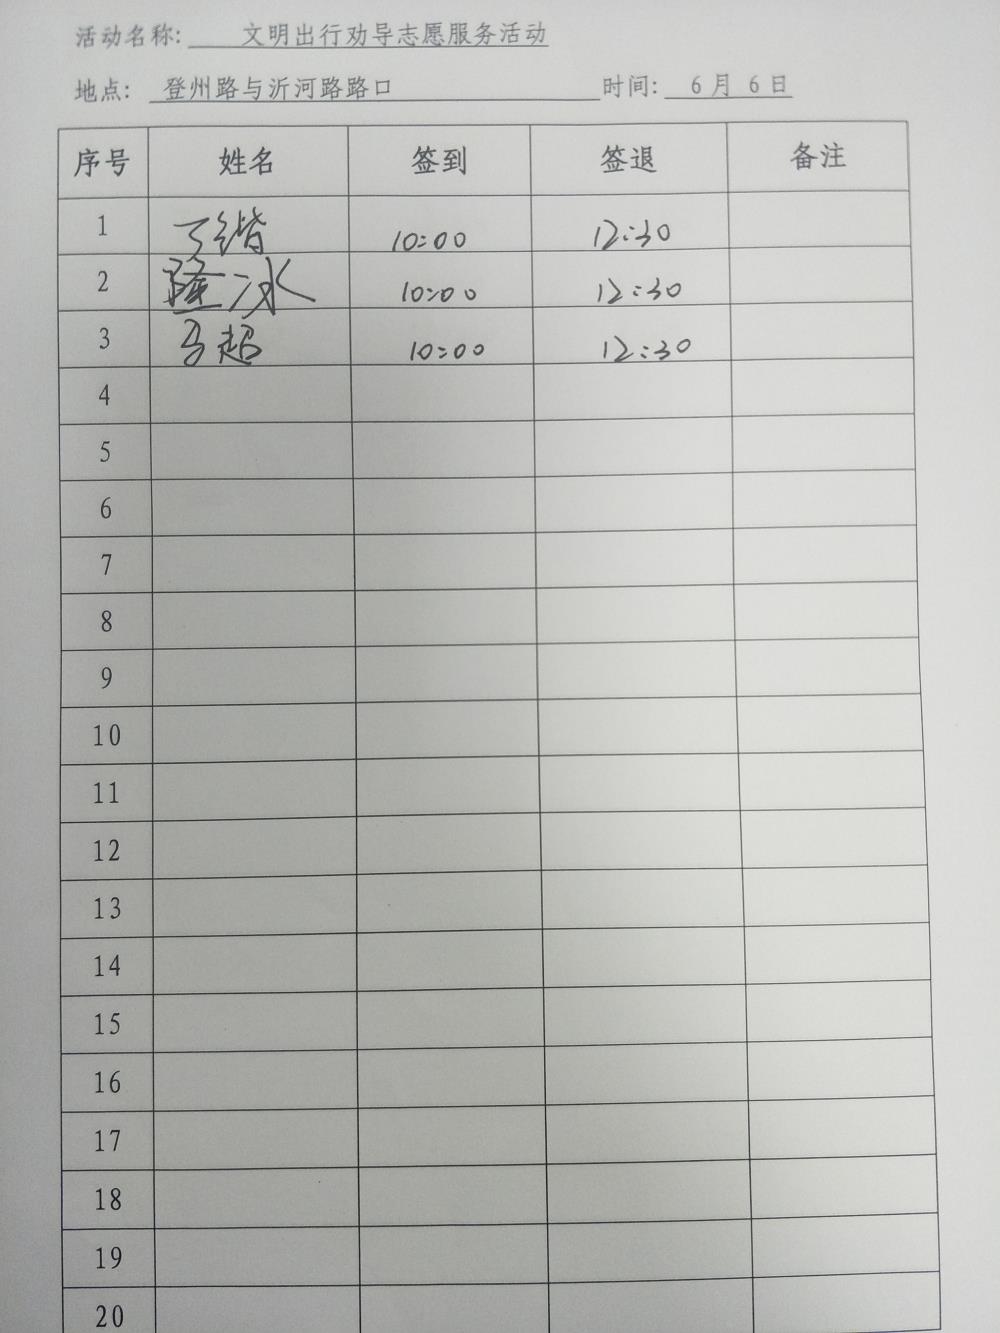 活动名称: 文明出行劝导志愿服务活动
地点: 登州路与沂河路路口 时间: 6月6日
序号 姓名 签到 签退 备注
1 丁锴 10:00 12:30
2 隆冰 10:00 12:30
3 马超 10:00 12:30
4
5
6
7
8
9
10
11
12
13
14
15
16
17
18
19
20